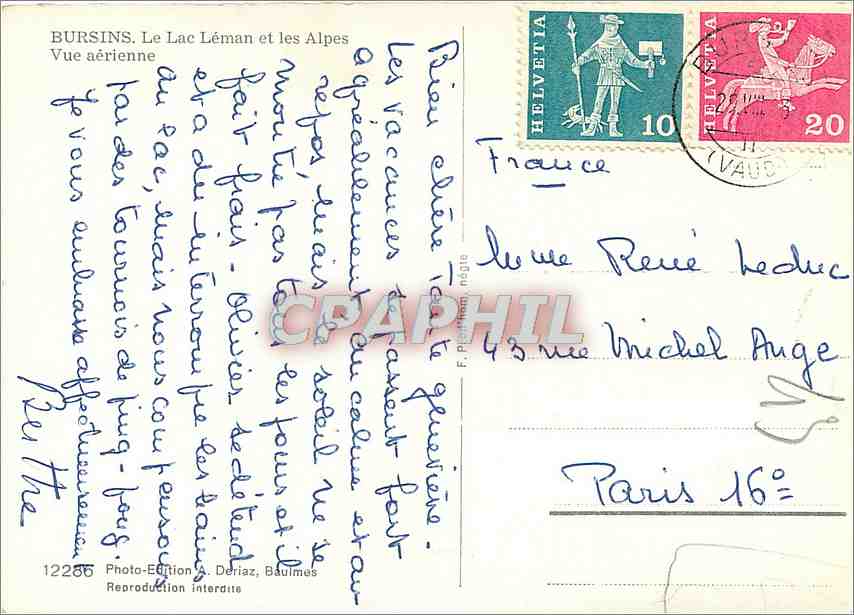 BURSINS. Le Lac Léman et les Alpes
Vue aérienne
Bien chère tante geneviève.
Les vacances se passent fort
agréablement du calme et du
repos, mais le soleil ne se
montre pas tous les jours et il
fait frais - Olivier se détend
et a du interrompre les bains
du lac, mais nous compensons
par des tournois de ping-pong.
Je vous embrasse affectueusement
Berthe
12286 Photo-Edition A. Deriaz, Baulmes
Reproduction interdite
F. Prod'hom, négte
CPARPHIL
HELVETIA
10
HELVETIA
20
(VAUD)
France
Mme René Leduc
43 rue Michel Ange
Paris 16e